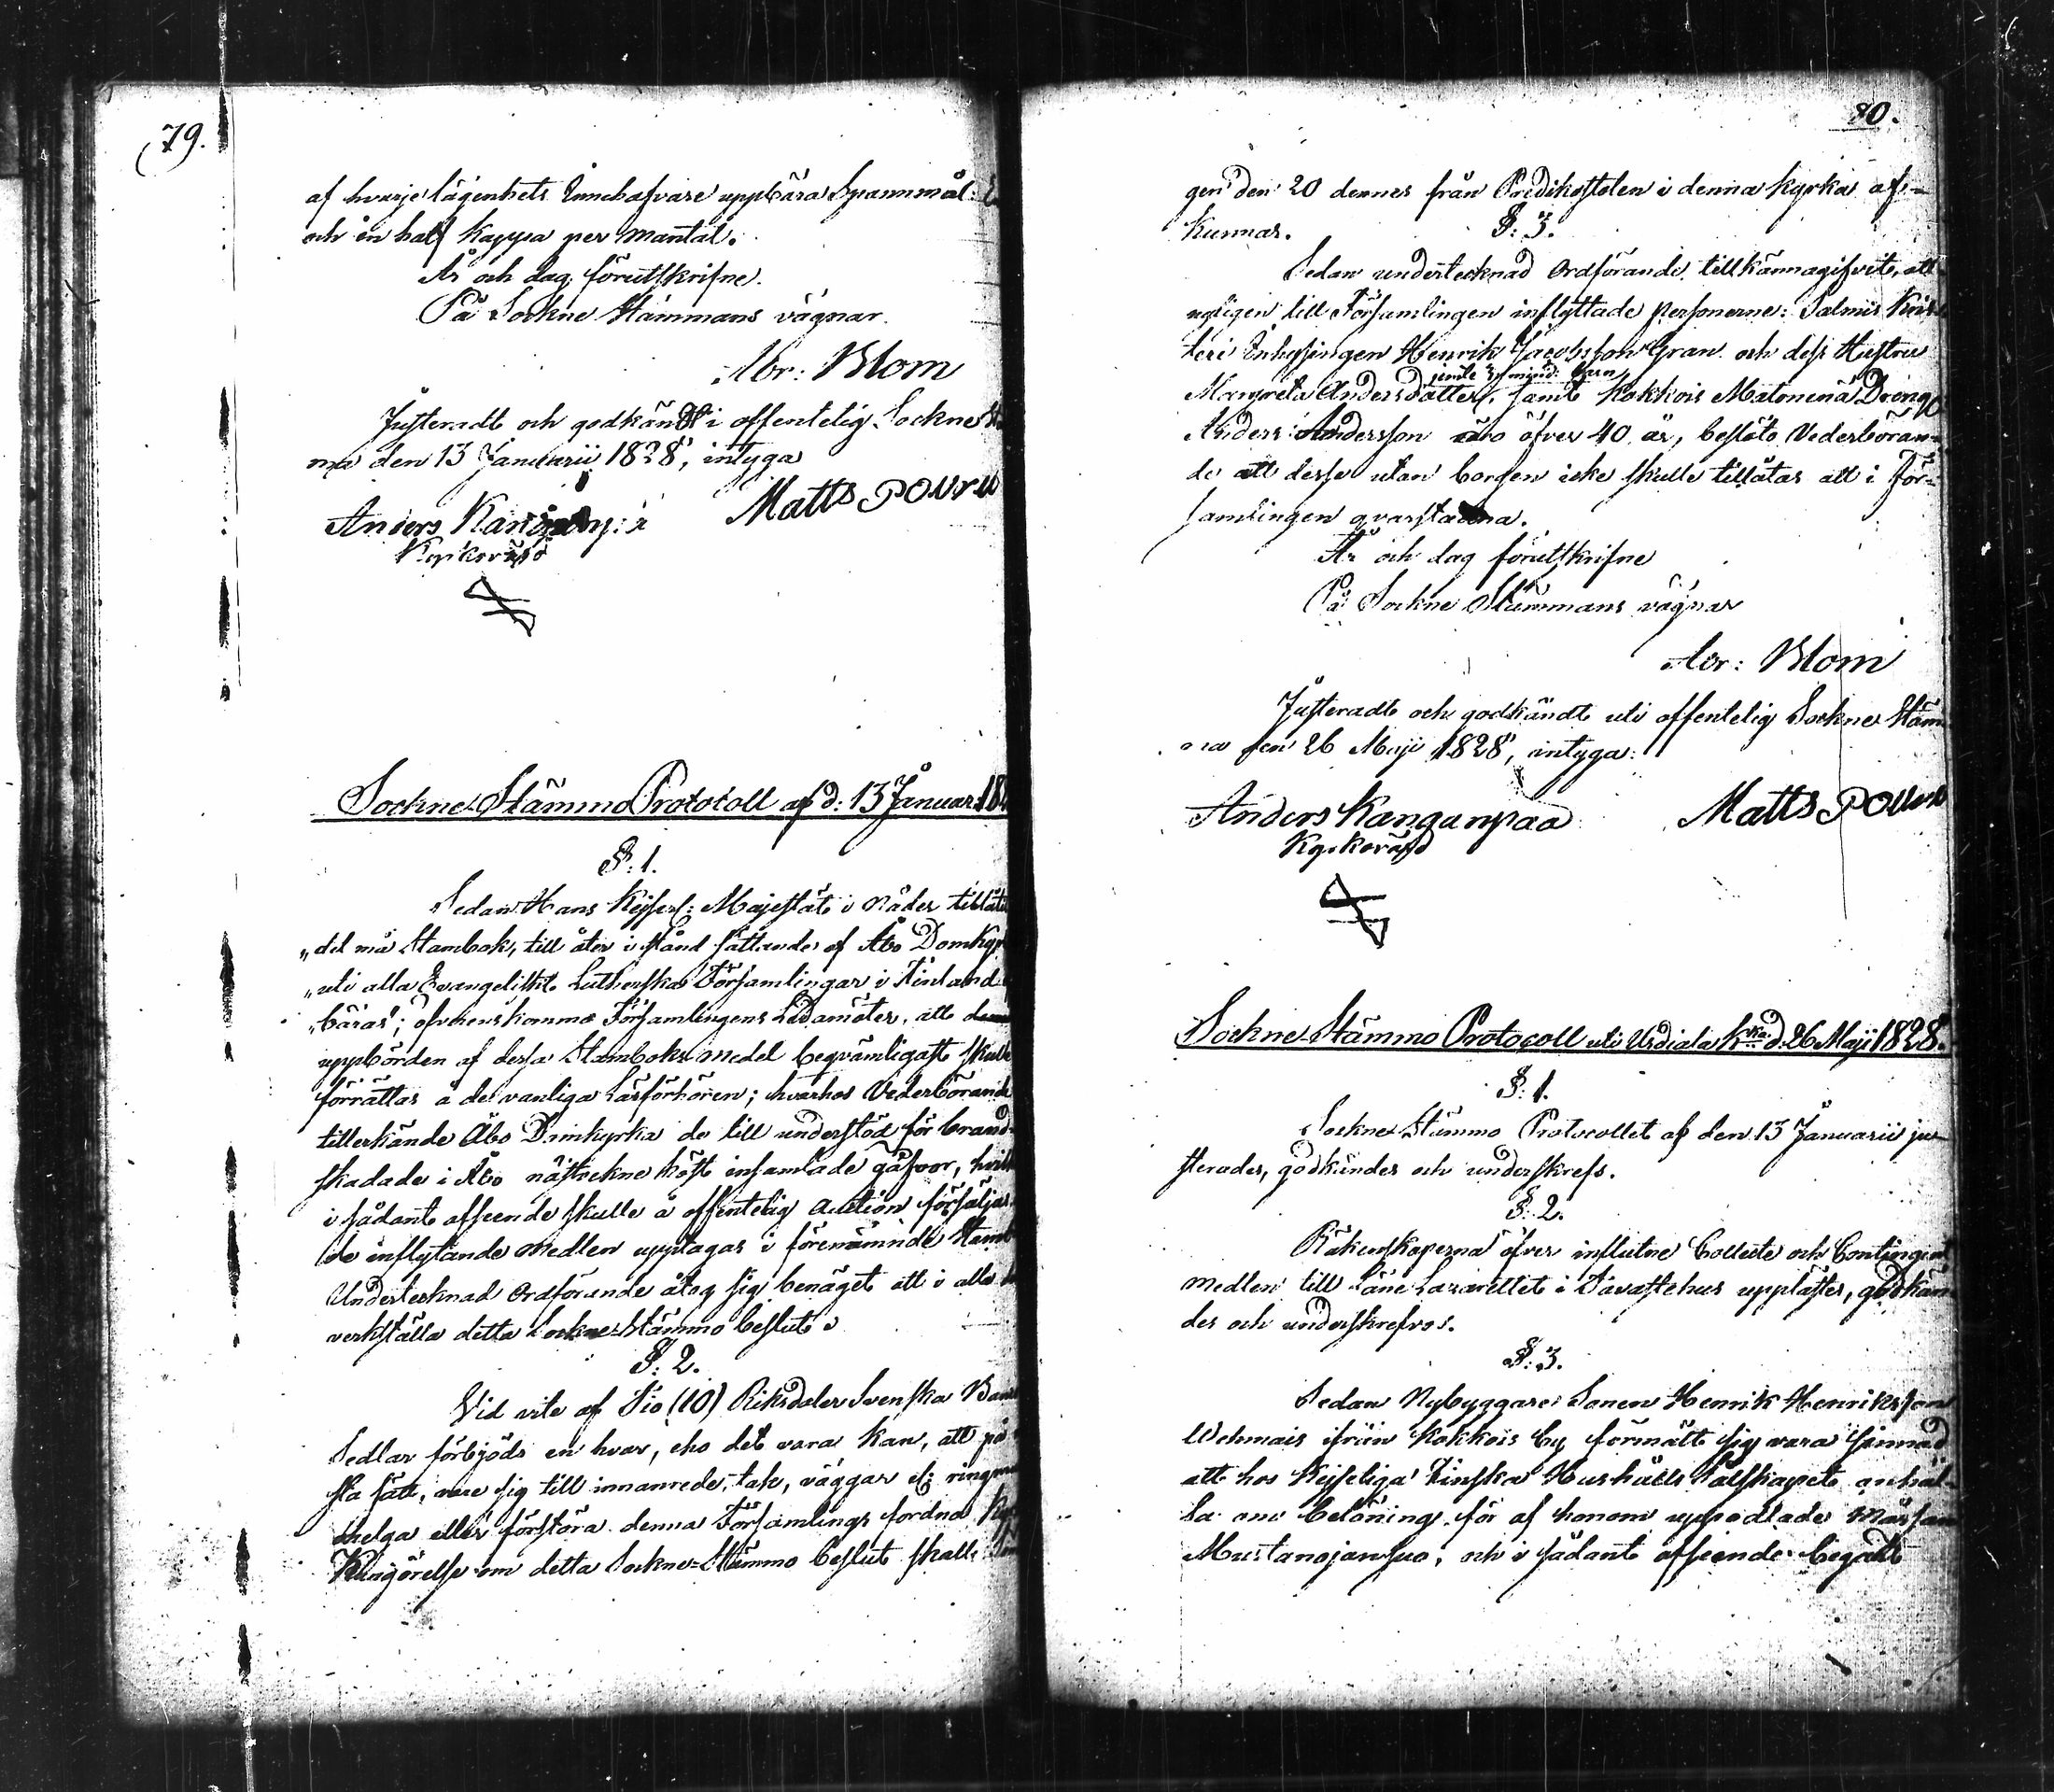 79.
af hvarje lägenhets Innehafvare uppbära Spannmål:
och en half Kappa per mantal.
År och dag förutskrifne.
På Sockne Stämmans vägnar
Abr: Blom
Justeradt och godkändt i offentelig Sockne
ma den 13 Januarii 1828, intyga
Matts Pouru
Anders
Kyrkovärd
Sockne-Stämmo Protocoll af d: 13 Januar: 18
§: 1.
Sedan Hans Kejserl: Majestät i Nåder tillåtit
"det må Stambok, till åter i stånd sättande af Åbo Domkyr
"uti alla Evangeliskt Lutherska Församlingar i Finland
"bäras"; öfverenskommo Församlingens Ledamöter, att
uppbörden af dessa Stamboks-medel beqvämligast skulle
förrättas å de vanliga Läsförhören; hvarhos Vederbörande
tillerkände Åbo Domkyrka de till understöd för brand-
skadade i Åbo nästvekne höst insamlade gåfvor, hvilk
i sådant afseende skulle å offentelig Auction försäljas
de inflytande medlen upptagas i förenämnde Stamb
Undertecknad Ordförande åtog sig benäget att i allo
verkställa detta Sockne-Stämmo beslut.
§: 2.
Vid vite af Tio (10) Riksdaler Svenska Banco
Sedlar förbjöds en hvar, eho det vara kan, att på
sta sätt, vare sig till innanrede, tak, väggar el: ringmur
helga eller förstöra denna Församlings fordna
Kungörelse om detta Sockne-Stämmo beslut skall
80.
gen den 20 dennes från Predikostolen i denna kyrka af-
kunnas.
§: 3.
Sedan undertecknad Ordförande tillkännagifvit, att
nyligen till Församlingen inflyttade personerne: Salmis
Inhysingen Henrik Jacobsson Gran och dess Hustru
jemte mind: barn
Margreta Andersdotter, samt Kokkois Matomena Dreng
Anders Andersson äro öfver 40 år, beslöto Vederböran-
de att desse utan borgen icke skulle tillåtas att i För-
samlingen qvarstadna.
År och dag förutskrifne
På Sockne Stämmans vägnar
Abr: Blom
Justeradt och godkändt uti offentelig Sockne Stäm
ma den 26 Maji 1828, intyga:
Anders Kanganpää
Matts Pouru
Kyrkovärd
Sockne-Stämmo Protocoll uti Urdiala K:ka d: 26 Maji 1828.
§: 1.
Sockne-Stämmo Protocollet af den 13 Januarii ju-
sterades, godkändes och underskrefs.
§: 2.
Räkenskaperna öfver influtne Collecte och Contingent
medlen till Läne Lazarettet i Tavastehus upplästes, godkän
des och underskrefvos.
§: 3.
Sedan Nybyggare Sonen Henrik Henriksson
Wehmais ifrån Kokkois by förmält sig vara sinnad
att hos Kejserliga Finska Hushålls Sälskapet anhål-
la om belöning för af honom uppodlade
Mustanojansuo, och i sådant afseende begärt